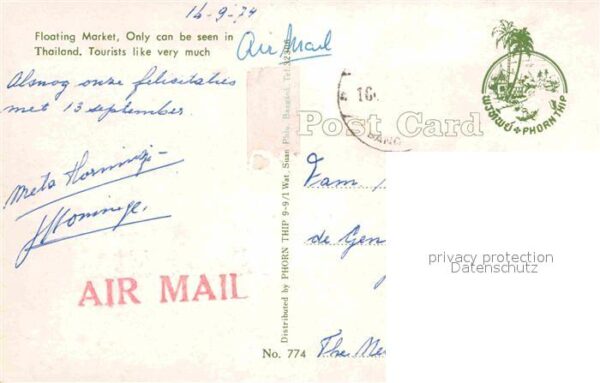 14-9-74
Floating Market, Only can be seen in
Thailand. Tourists like very much
Air Mail
Alsnog onze felicitaties
met 13 september.
Meta
AIR MAIL
Distributed by PHORN THIP 9-9/1 Wat. Suan Phlu. Bangkok Tel.
No. 774
Post Card
16
BANG
พรทิพย์ PHORN THIP
Fam
de Gen
The Ne
privacy protection
Datenschutz